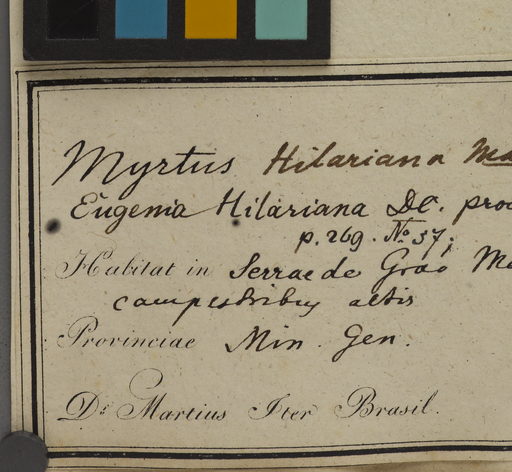 Myrtus Hilariana Ma
Eugenia Hilariana DC. pro
p. 269. No 37;
Habitat in Serra de Grao Mo
campestribus altis
Provinciae Min. Gen.
Dr. Martius Iter Brasil.